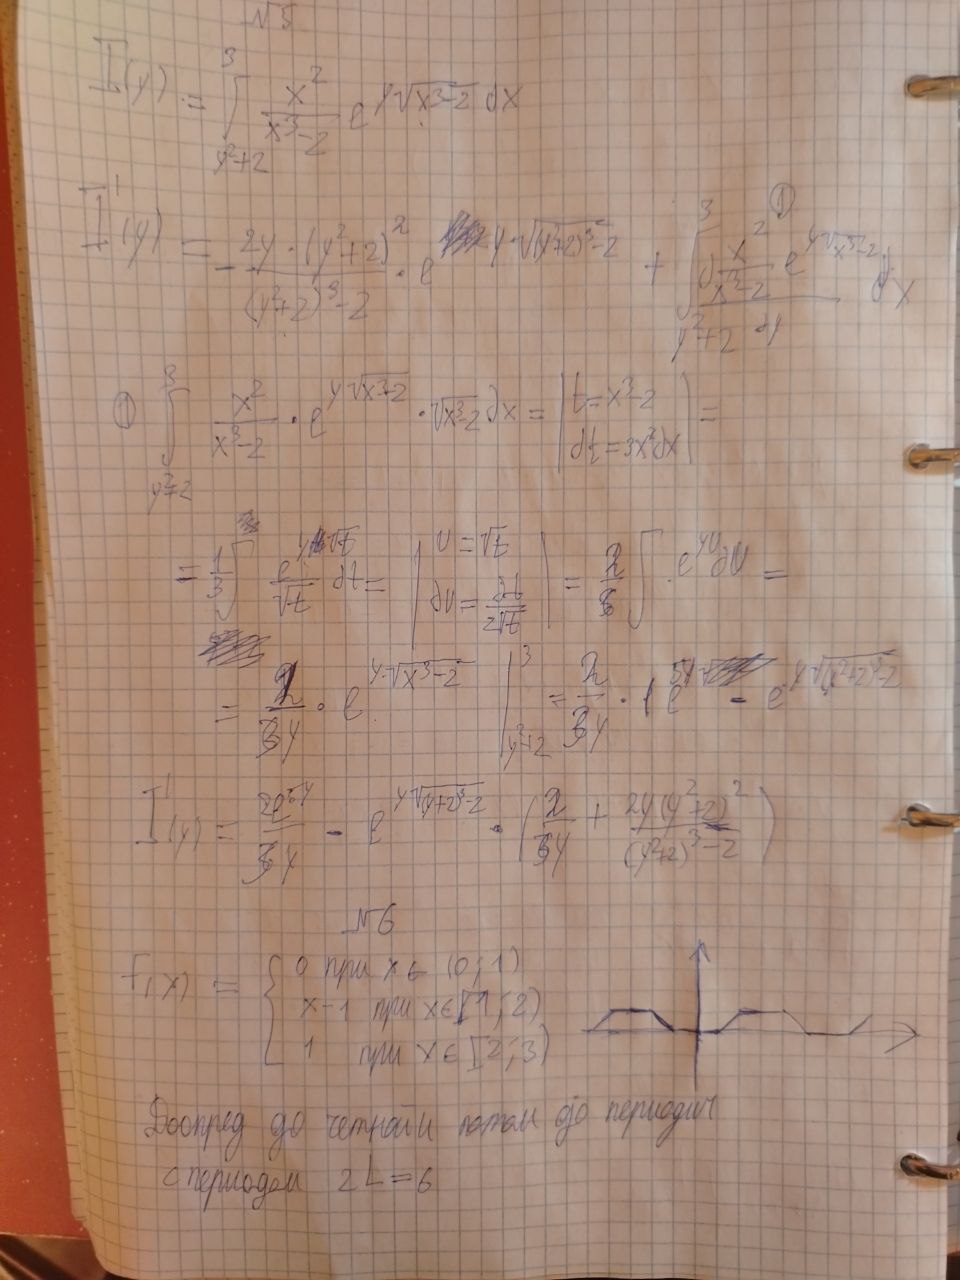 №5
I(y) = ∫_{y²+2}^{3} x²/(x³-2) e^{y√(x³-2)} dx
I'(y) = - 2y·(y²+2)²/((y²+2)³-2) · e^{y·√((y²+2)³-2)} + ∫_{y²+2}^{3} d x²/(x³-2) e^{y√(x³-2)} / dy dx ①
① ∫_{y²+2}^{3} x²/(x³-2) · e^{y√(x³-2)} · √(x³-2) dx = | t = x³-2 dt = 3x²dx | =
= 1/3 ∫ e^{y√t}/√t dt = | U = √t dU = dt/(2√t) | = 2/3 ∫ · e^{yU} dU =
= 2/(3y) · e^{y·√(x³-2)} |_{y²+2}^{3} = 2/(3y) · 1 e^{5y} - e^{y√((y²+2)³-2)}
I'(y) = 2e^{5y}/(3y) - e^{y√((y+2)³-2)} · ( 2/(3y) + 2y(y²+2)²/((y²+2)³-2) )
№6
f(x) = { 0 при x ∈ (0;1)
x-1 при x ∈ [1;2)
1 при x ∈ [2;3)
Доопред до четной и потом до периодич
с периодом 2L = 6